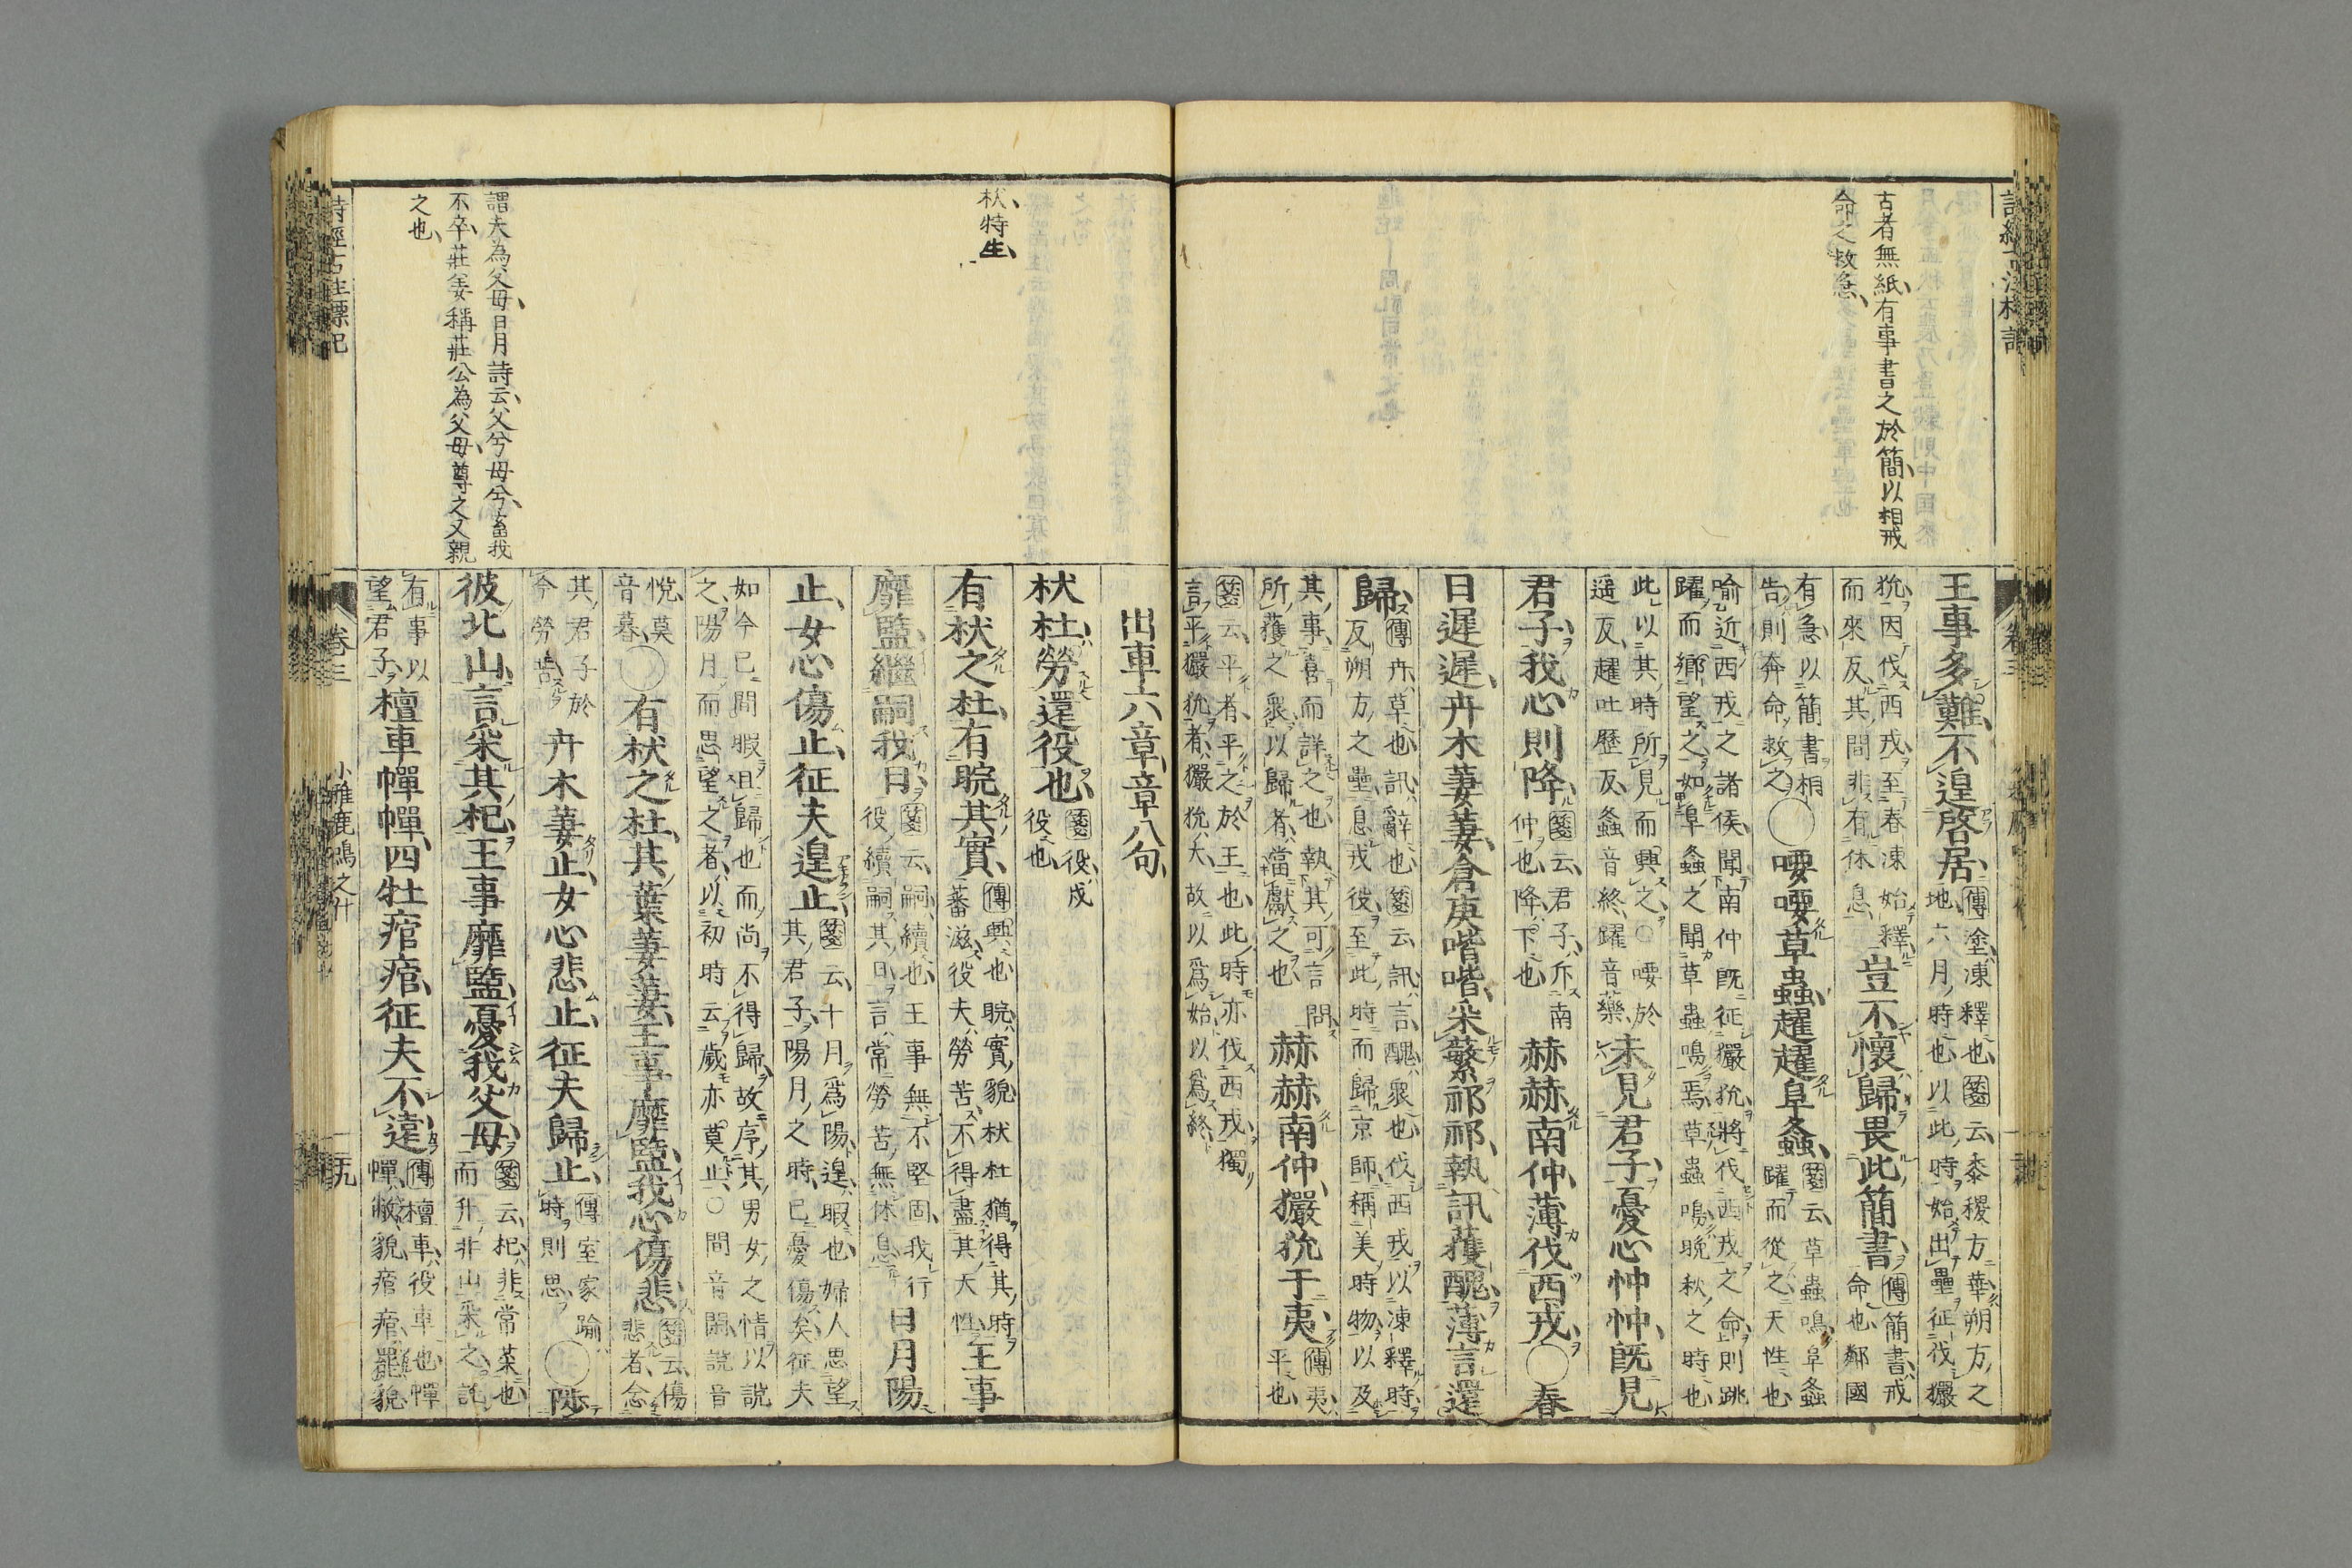 古者無紙有事書之於簡以相戒
命之救急
王事多難不遑啓居傳塗凍釋也箋云黍稷方華朔方之地六月時也以此時始出壘征伐玁
狁因伐西戎至春凍始釋而來反其間非有休息豈不懷歸畏此簡書傳簡書戒命也鄰國
有急以簡書相告則奔命救之〇喓喓草蟲趯趯阜螽箋云草蟲鳴阜螽躍而從之天性也
喻近西戎之諸侯聞南仲旣征玁狁將伐西戎之命則跳躍而鄉望之如阜螽之聞草蟲鳴焉草蟲鳴晩秋之時也
此以其時所見而興之〇喓於遥反趯吐歷反螽音終躍音藥未見君子憂心忡忡旣見
君子我心則降箋云君子斥南仲也降下也赫赫南仲薄伐西戎〇春
日遲遲卉木萋萋倉庚喈喈采蘩祁祁執訊獲醜薄言還
歸傳卉草也訊辭也箋云訊言醜衆也伐西戎以凍釋時反朔方之壘息戍役至此時而歸京師稱美時物以及
其事喜而詳之也執其可言問所獲之衆以歸者當獻之也赫赫南仲玁狁于夷傳夷平也
箋云平者平之於王也此時亦伐西戎獨言平玁狁者玁狁大故以爲始以爲終
杕特生
謂夫為父母日月詩云父兮母兮畜我
不卒莊姜稱莊公為父母尊之又親
之也
出車六章章八句
杕杜勞還役也箋役戍役也
有杕之杜有睆其實傳興也睆實貌杕杜猶得其時蕃滋役夫勞苦不得盡其天性王事
靡盬繼嗣我日箋云嗣續也王事無不堅固我行役續嗣其日言常勞苦無休息日月陽
止女心傷止征夫遑止箋云十月爲陽遑暇也婦人思望其君子陽月之時已憂傷矣征夫
如今已間暇且歸也而尚不得歸故序其男女之情以說之陽月而思望之者以初時云歲亦莫止〇間音閑說音
悅莫音暮〇有杕之杜其葉萋萋王事靡盬我心傷悲箋云傷悲者念
其君子於今勞苦卉木萋止女心悲止征夫歸止傳室家踰時則思〇陟
彼北山言采其杞王事靡盬憂我父母箋云杞非常菜也而升北山采之託
有事以望君子檀車幝幝四牡痯痯征夫不遠傳檀車役車也幝幝敝貌痯痯罷貌
詩經古註標記
卷三
小雅鹿鳴之什